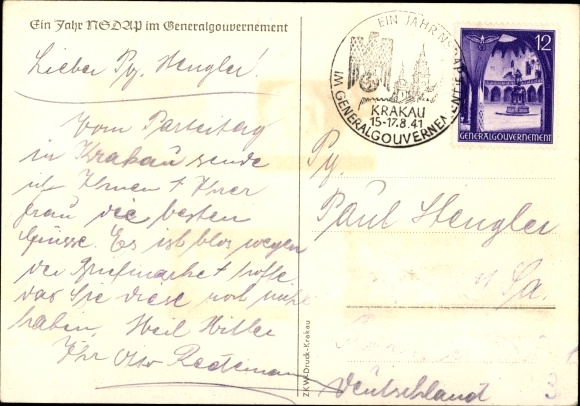 Ein Jahr NSDAP im Generalgouvernement
Lieber Pg. Stengler!
Vom Parteitag
in Krakau sende
ich Ihnen + Ihrer
Frau die besten
Grüsse. Es ist blos wegen
der Briefmarke hoffe
das Sie diese noch nicht
haben. Heil Hitler
Ihr Otto
EIN JAHR NSDAP
IM GENERALGOUVERNEMENT
KRAKAU
15-17.8.41
12
GENERALGOUVERNEMENT
Pg.
Paul Stengler
Sa.
Deutschland
3
ZKW-Druck-Krakau